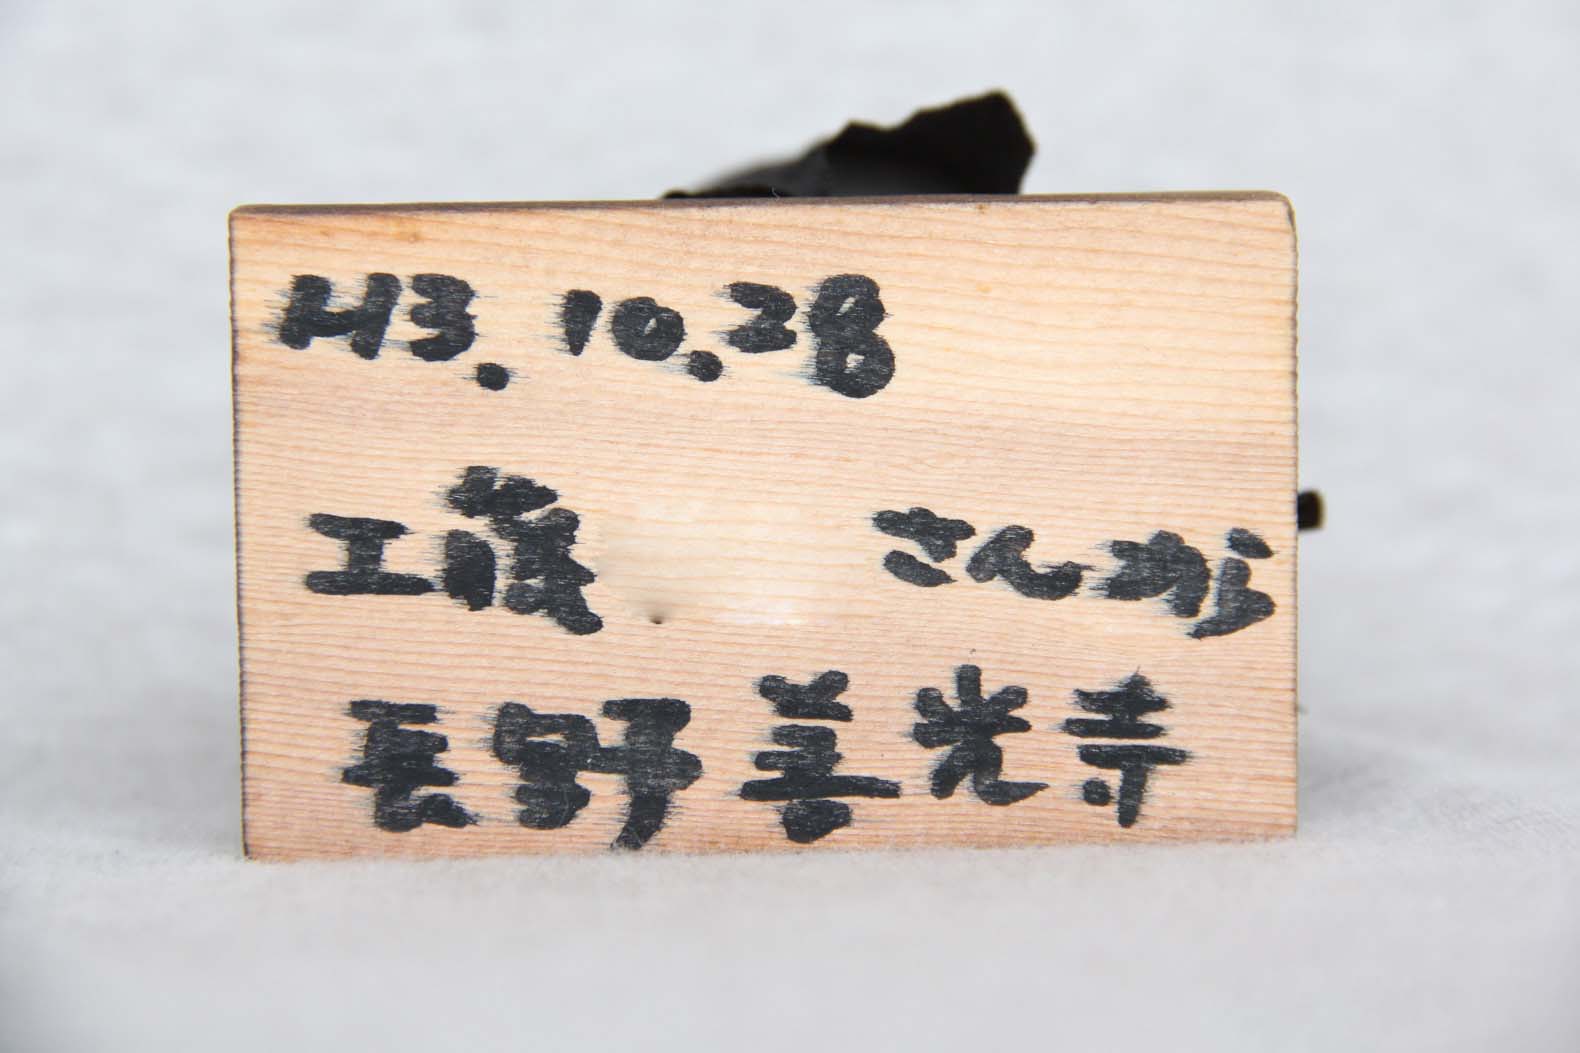 H3.10.28
工藤 さんから
長野善光寺